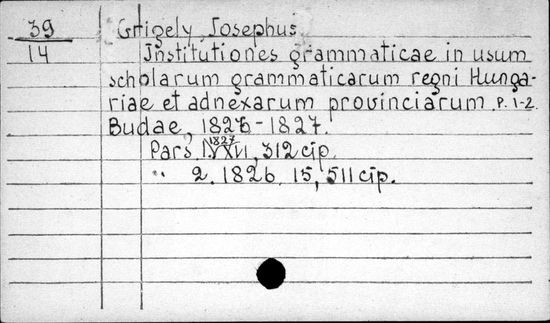 39 Grigely, Josephus
14 Institutiones grammaticae in usum
scholarum grammaticarum regni Hunga-
riae et adnexarum provinciarum. P. 1-2.
Budae, 1826-1827.
Pars 1. 1827 XXVI, 312 cip.
" 2. 1826. 15, 511 cip.